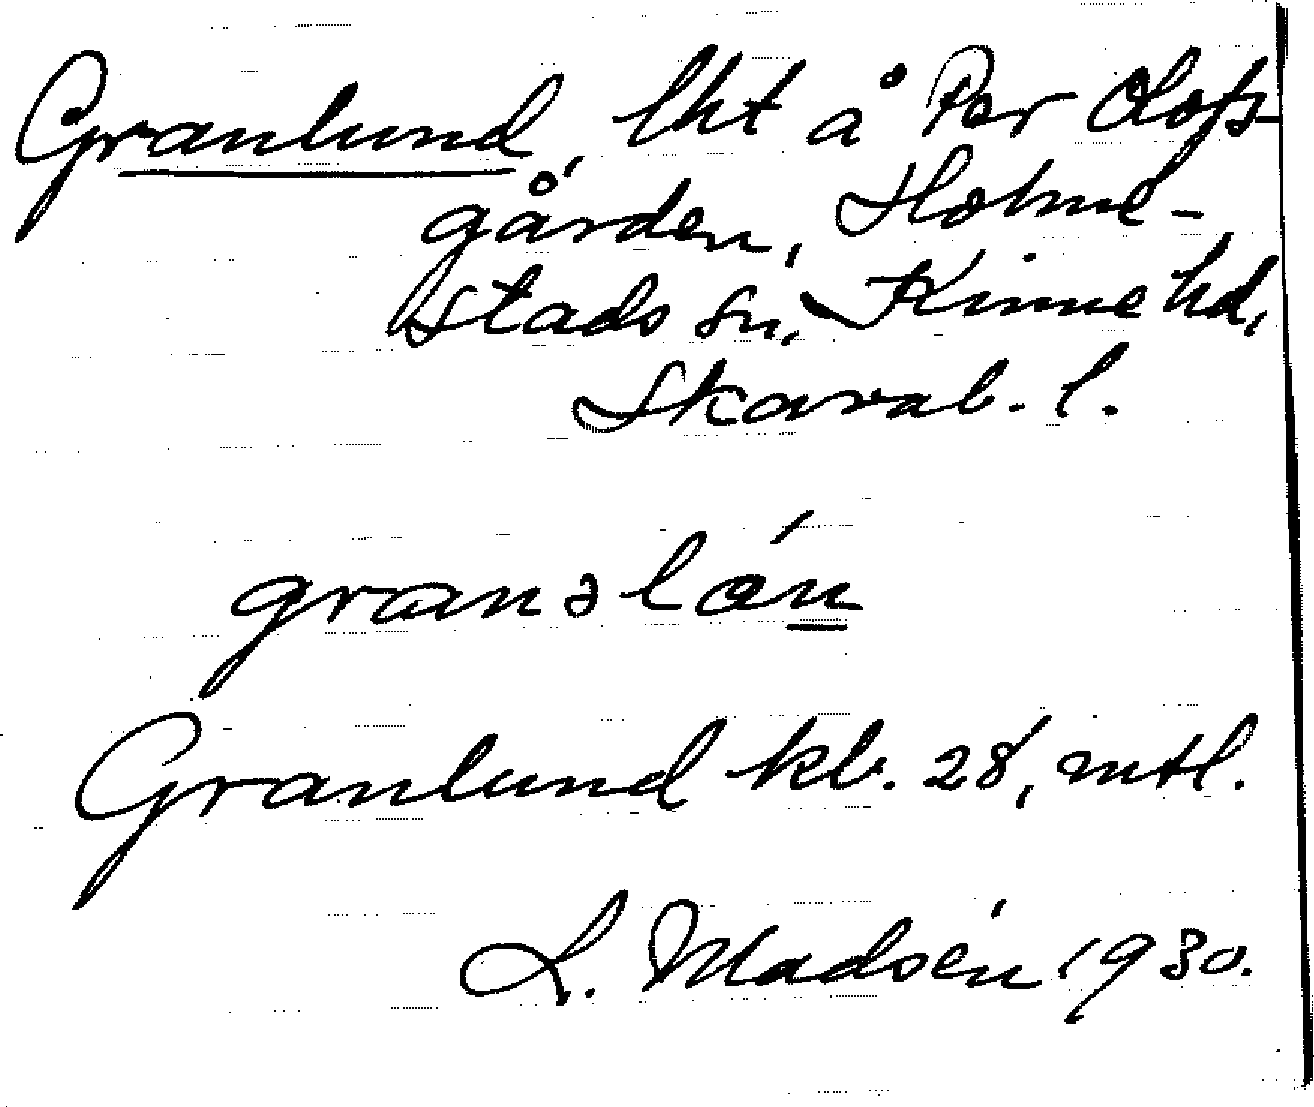 Granlund, lht å Per Olofs-
gården, Holme-
stads sn, Kinne hd,
Skarab. l.
granəlón
Granlund kb. 28, mtl.
L. Madsén 1930.